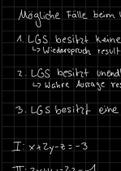 Mögliche Fälle beim
1. LGS besitzt keine
↳ Wiederspruch result
2. LGS besitzt unend
↳ Wahre Aussage res
3. LGS besitzt eine
I: x+2y-z=-3